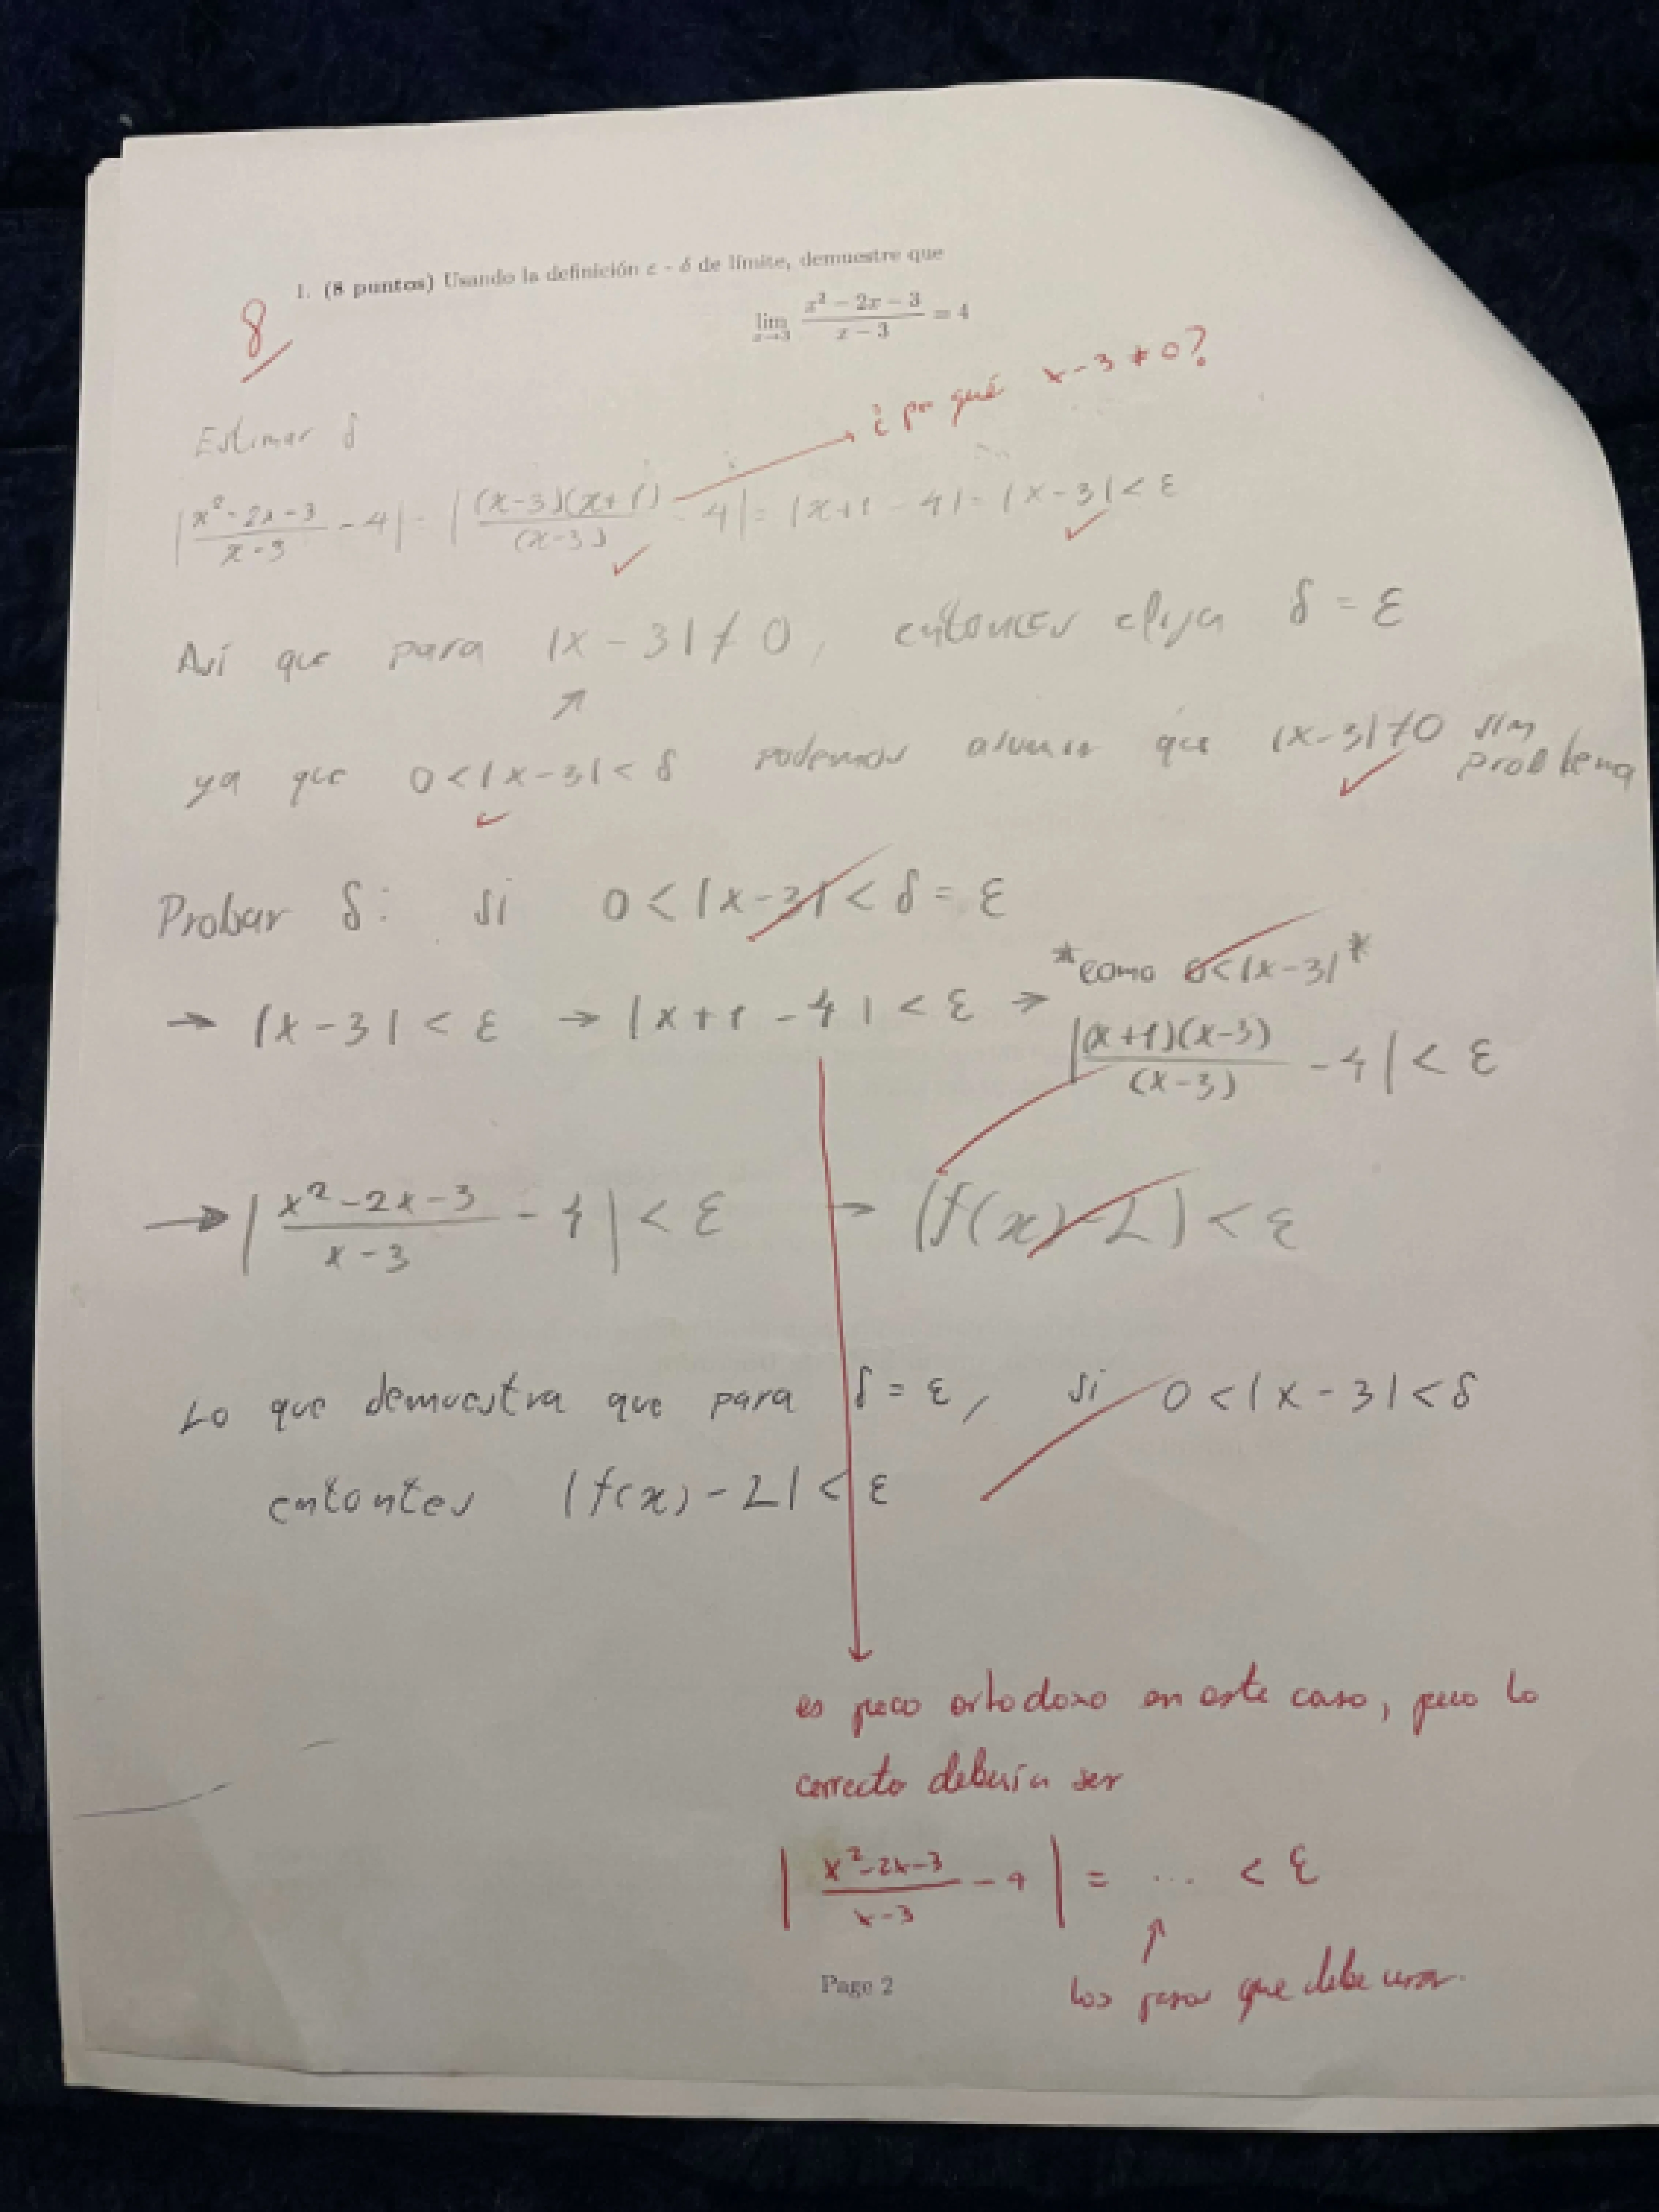 1. (8 puntos) Usando la definición ε - δ de límite, demuestre que
lim x→3 (x² − 2x − 3)/(x − 3) = 4
8
¿por qué x-3≠0?
Estimar δ
|(x²-2x-3)/(x-3) - 4| = |(x-3)(x+1)/(x-3) - 4| = |x+1-4| = |x-3| < ε
Así que para |x-3| ≠ 0, entonces elija δ = ε
ya que 0<|x-3|<δ podemos asumir que |x-3|≠0 sin problema
Probar δ: si 0<|x-3|<δ=ε
*como 0<|x-3|*
→ |x-3|<ε → |x+1-4|<ε → |(x+1)(x-3)/(x-3) - 4| < ε
→ |(x²-2x-3)/(x-3) - 4| < ε → |f(x)-L| < ε
Lo que demuestra que para δ=ε, si 0<|x-3|<δ
entontes |f(x)-L|<ε
es poco ortodoxo en este caso, pero lo
correcto debería ser
|(x²-2x-3)/(x-3) - 4| = ... < ε
↑
los pasos que debe usar.
Page 2